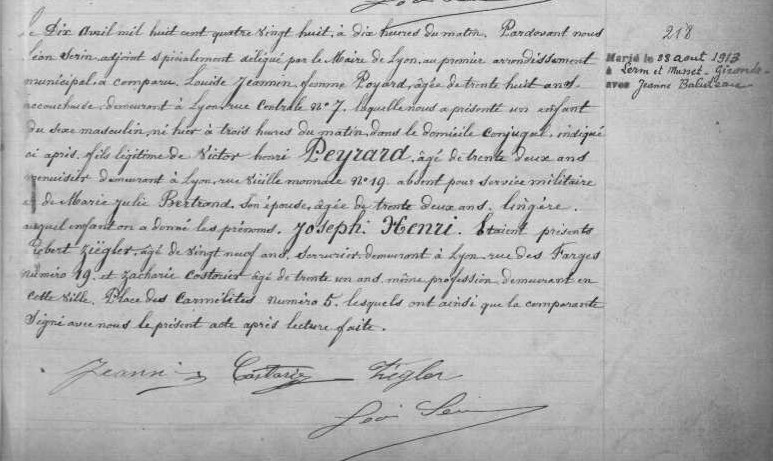 Le Dix Avril mil huit cent quatre vingt huit, à dix heures du matin. Pardevant nous
Léon Serin adjoint spécialement délégué par le Maire de Lyon, au premier arrondissement
municipal, a comparu Louise Jeannin, femme Poyard, âgée de trente huit ans,
accoucheuse, demeurant à Lyon, rue Centrale n° 7. laquelle nous a présenté un enfant
du sexe masculin, né hier à trois heures du matin, dans le domicile conjugal, indiqué
ci après, fils légitime de Victor henri Peyrard, âgé de trente deux ans
menuisier demeurant à Lyon, rue Vieille monnaie N° 19. absent pour service militaire
et de Marie Julie Bertrand, son épouse, âgée de trente deux ans, lingère.
auquel enfant on a donné les prénoms, Joseph Henri. Étaient présents
Robert Ziègler, âgé de vingt neuf ans, serrurier, demeurant à Lyon rue des Farges
numéro 19. et Zacharie Castarier âgé de trente un ans, même profession demeurant en
cette ville, Place des Carmélites numéro 5. lesquels ont ainsi que la comparante
Signé avec nous le présent acte après lecture faite.
218
Marié le 28 aout 1913
à Lerm et Musset - Gironde -
avec Jeanne
Jeannin Castarier Ziègler
Léon Serin